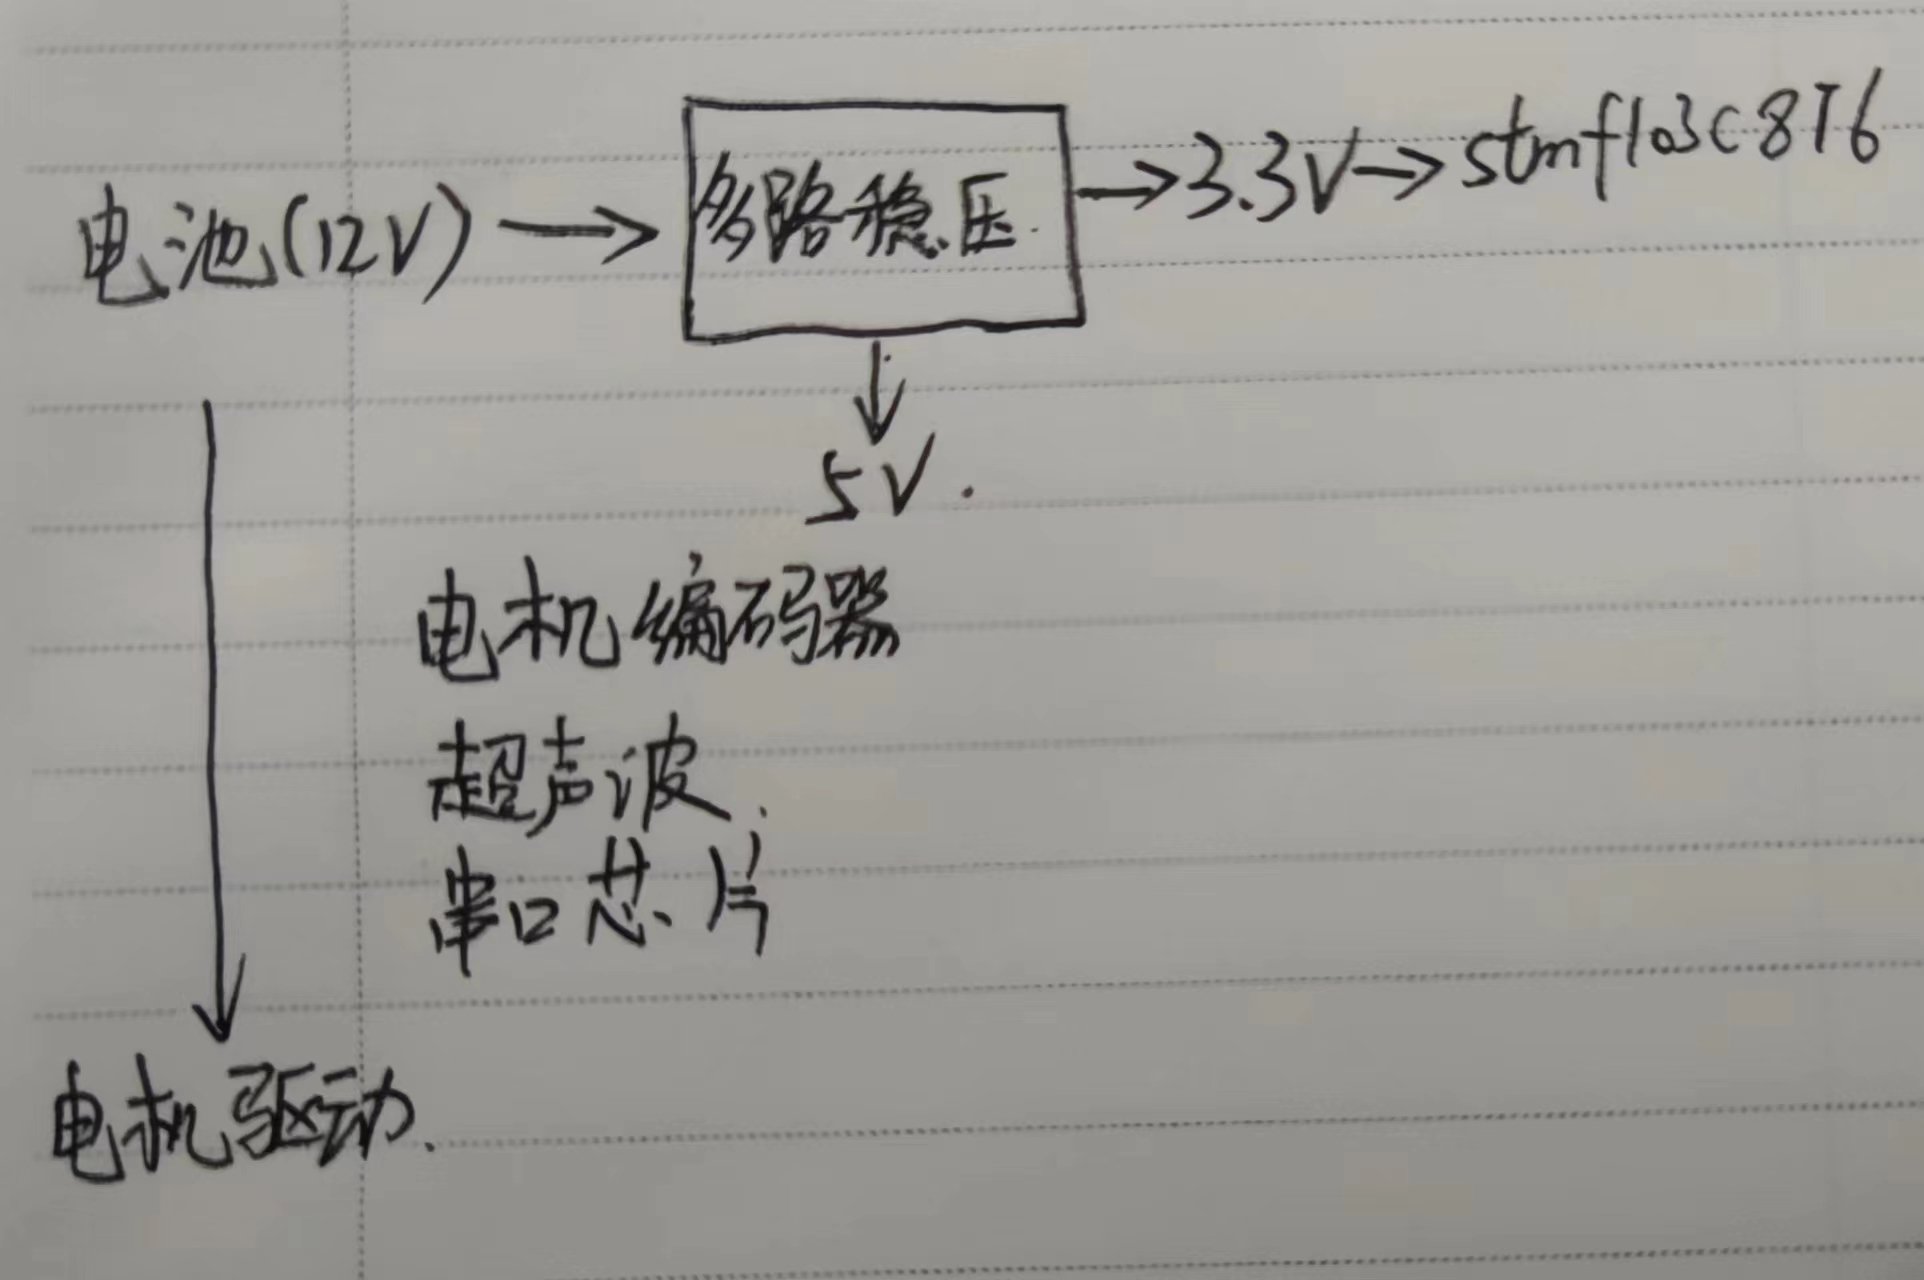 电池(12V) → 多路稳压 → 3.3V → stmf103C8T6
5V.
电机编码器
超声波
串口芯片
电机驱动.